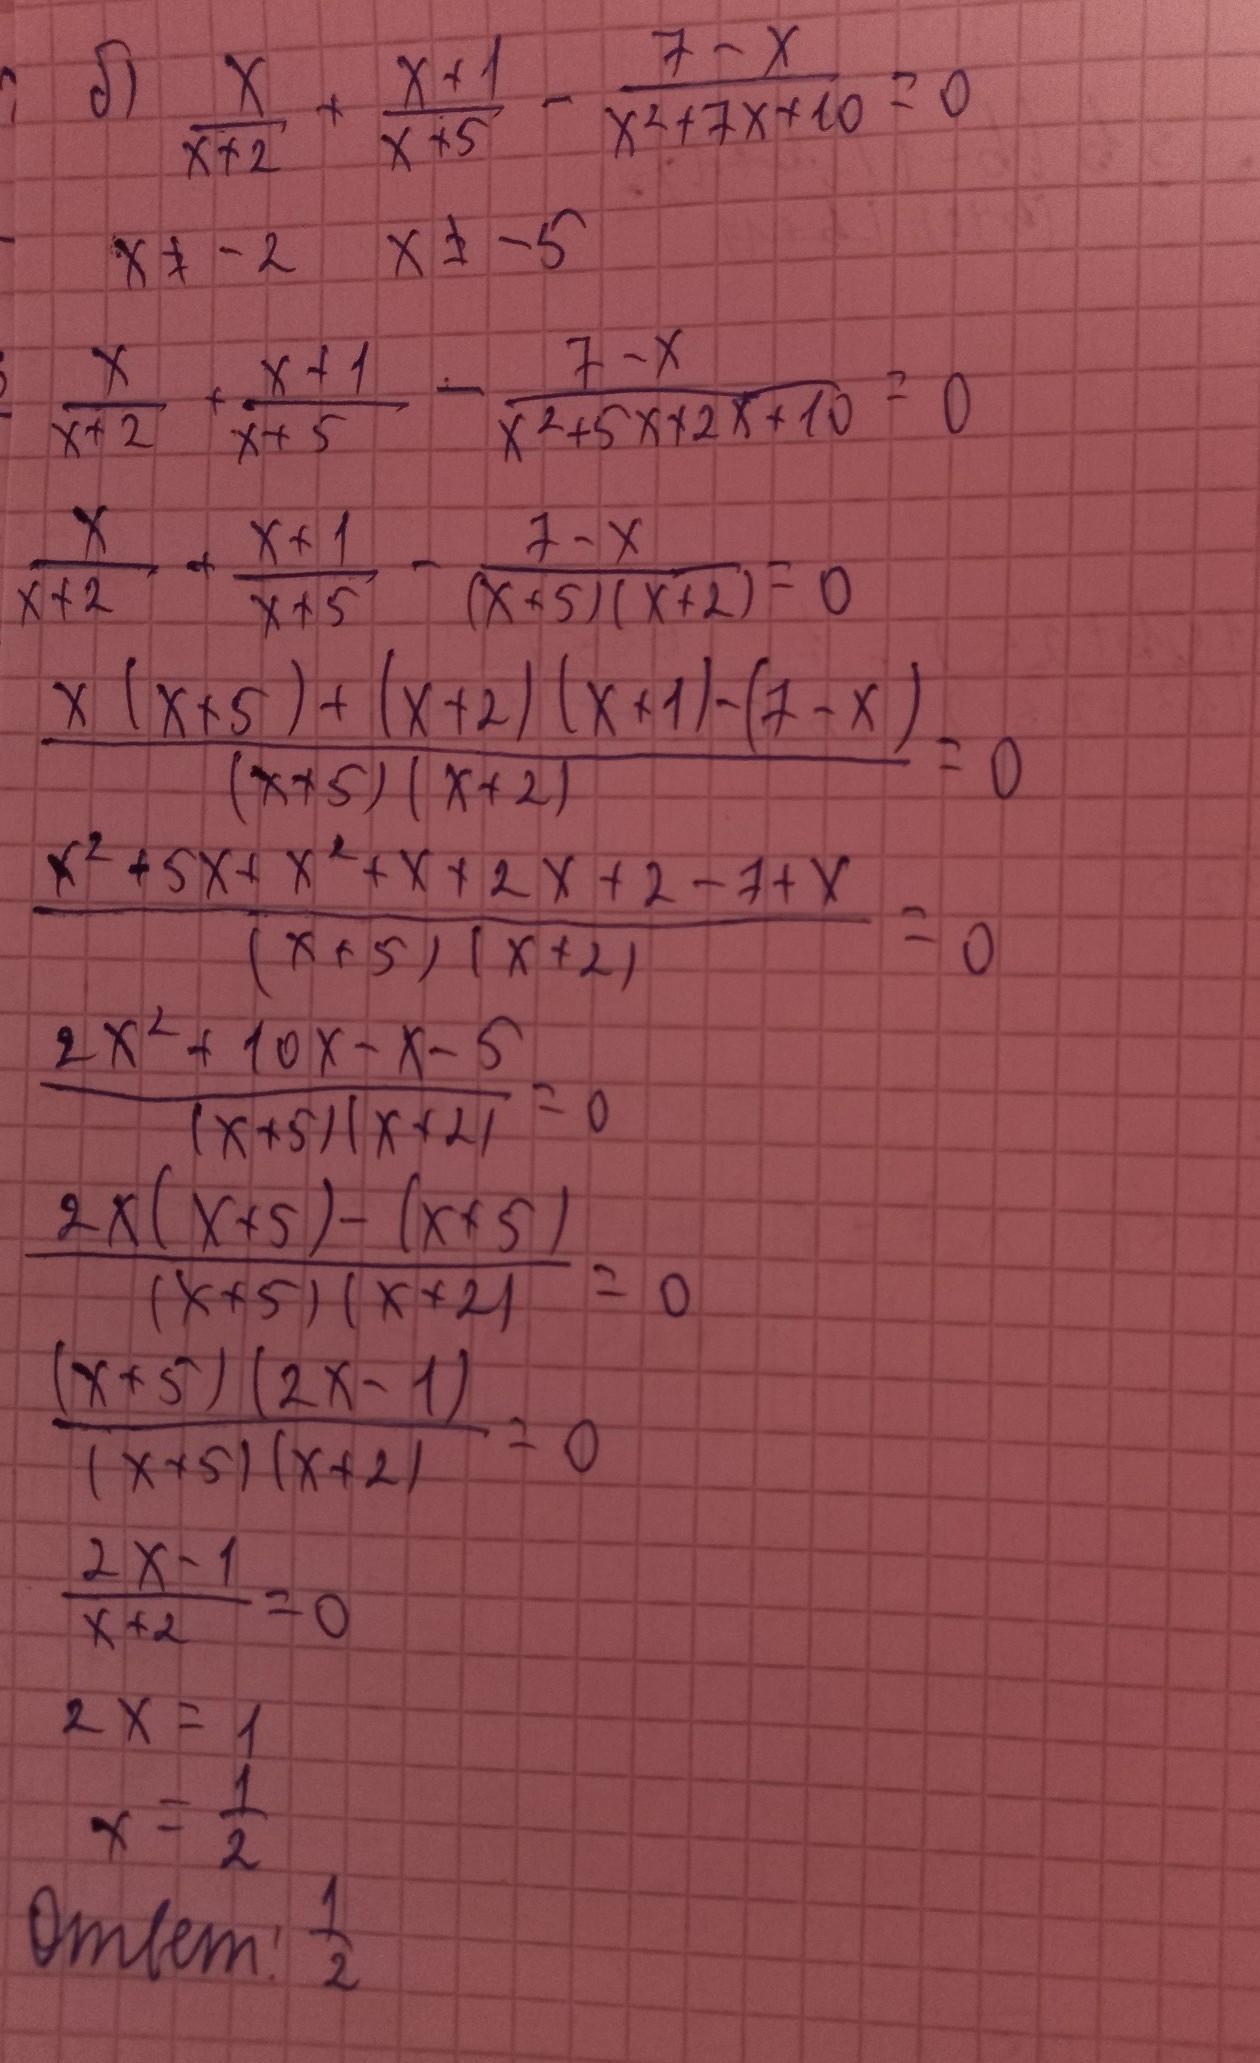 б) x/(x+2) + (x+1)/(x+5) - (7-x)/(x²+7x+10) = 0
x ≠ -2 x ≠ -5
x/(x+2) + (x+1)/(x+5) - (7-x)/(x²+5x+2x+10) = 0
x/(x+2) + (x+1)/(x+5) - (7-x)/((x+5)(x+2)) = 0
(x(x+5)+(x+2)(x+1)-(7-x))/((x+5)(x+2)) = 0
(x²+5x+x²+x+2x+2-7+x)/((x+5)(x+2)) = 0
(2x²+10x-x-5)/((x+5)(x+2)) = 0
(2x(x+5)-(x+5))/((x+5)(x+2)) = 0
((x+5)(2x-1))/((x+5)(x+2)) = 0
(2x-1)/(x+2) = 0
2x = 1
x = 1/2
Ответ: 1/2